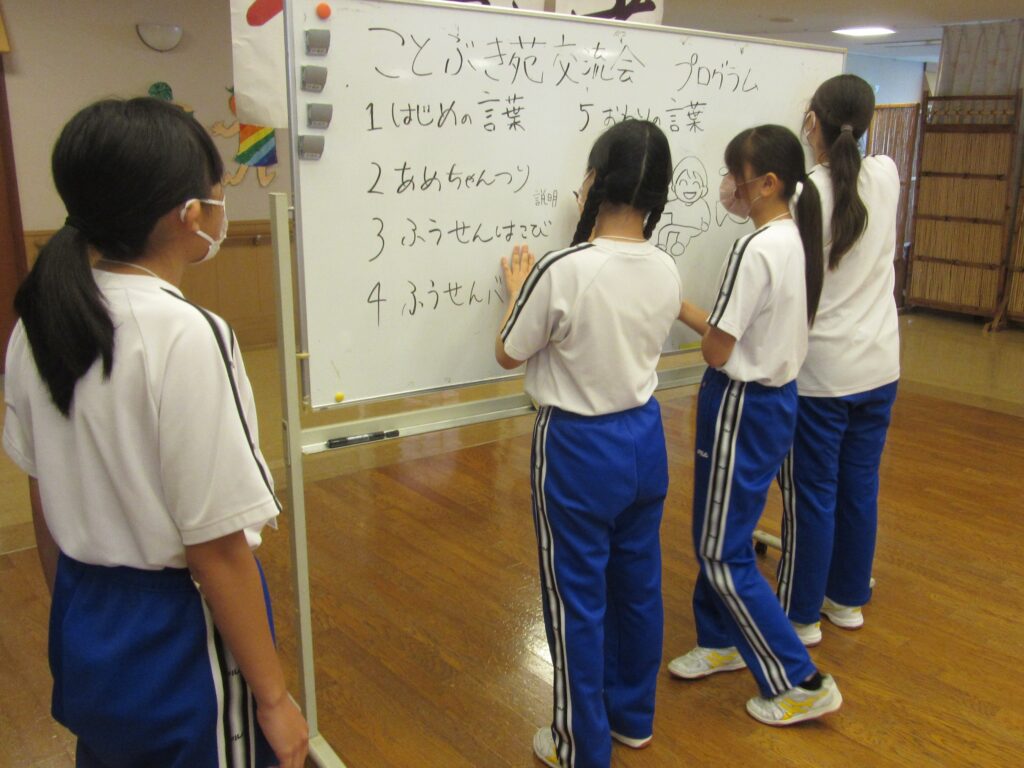 ことぶき苑交流会 プログラム
1 はじめの言葉
2 あめちゃんつり
説明
3 ふうせんはこび
4 ふうせんバ
5 おわりの言葉